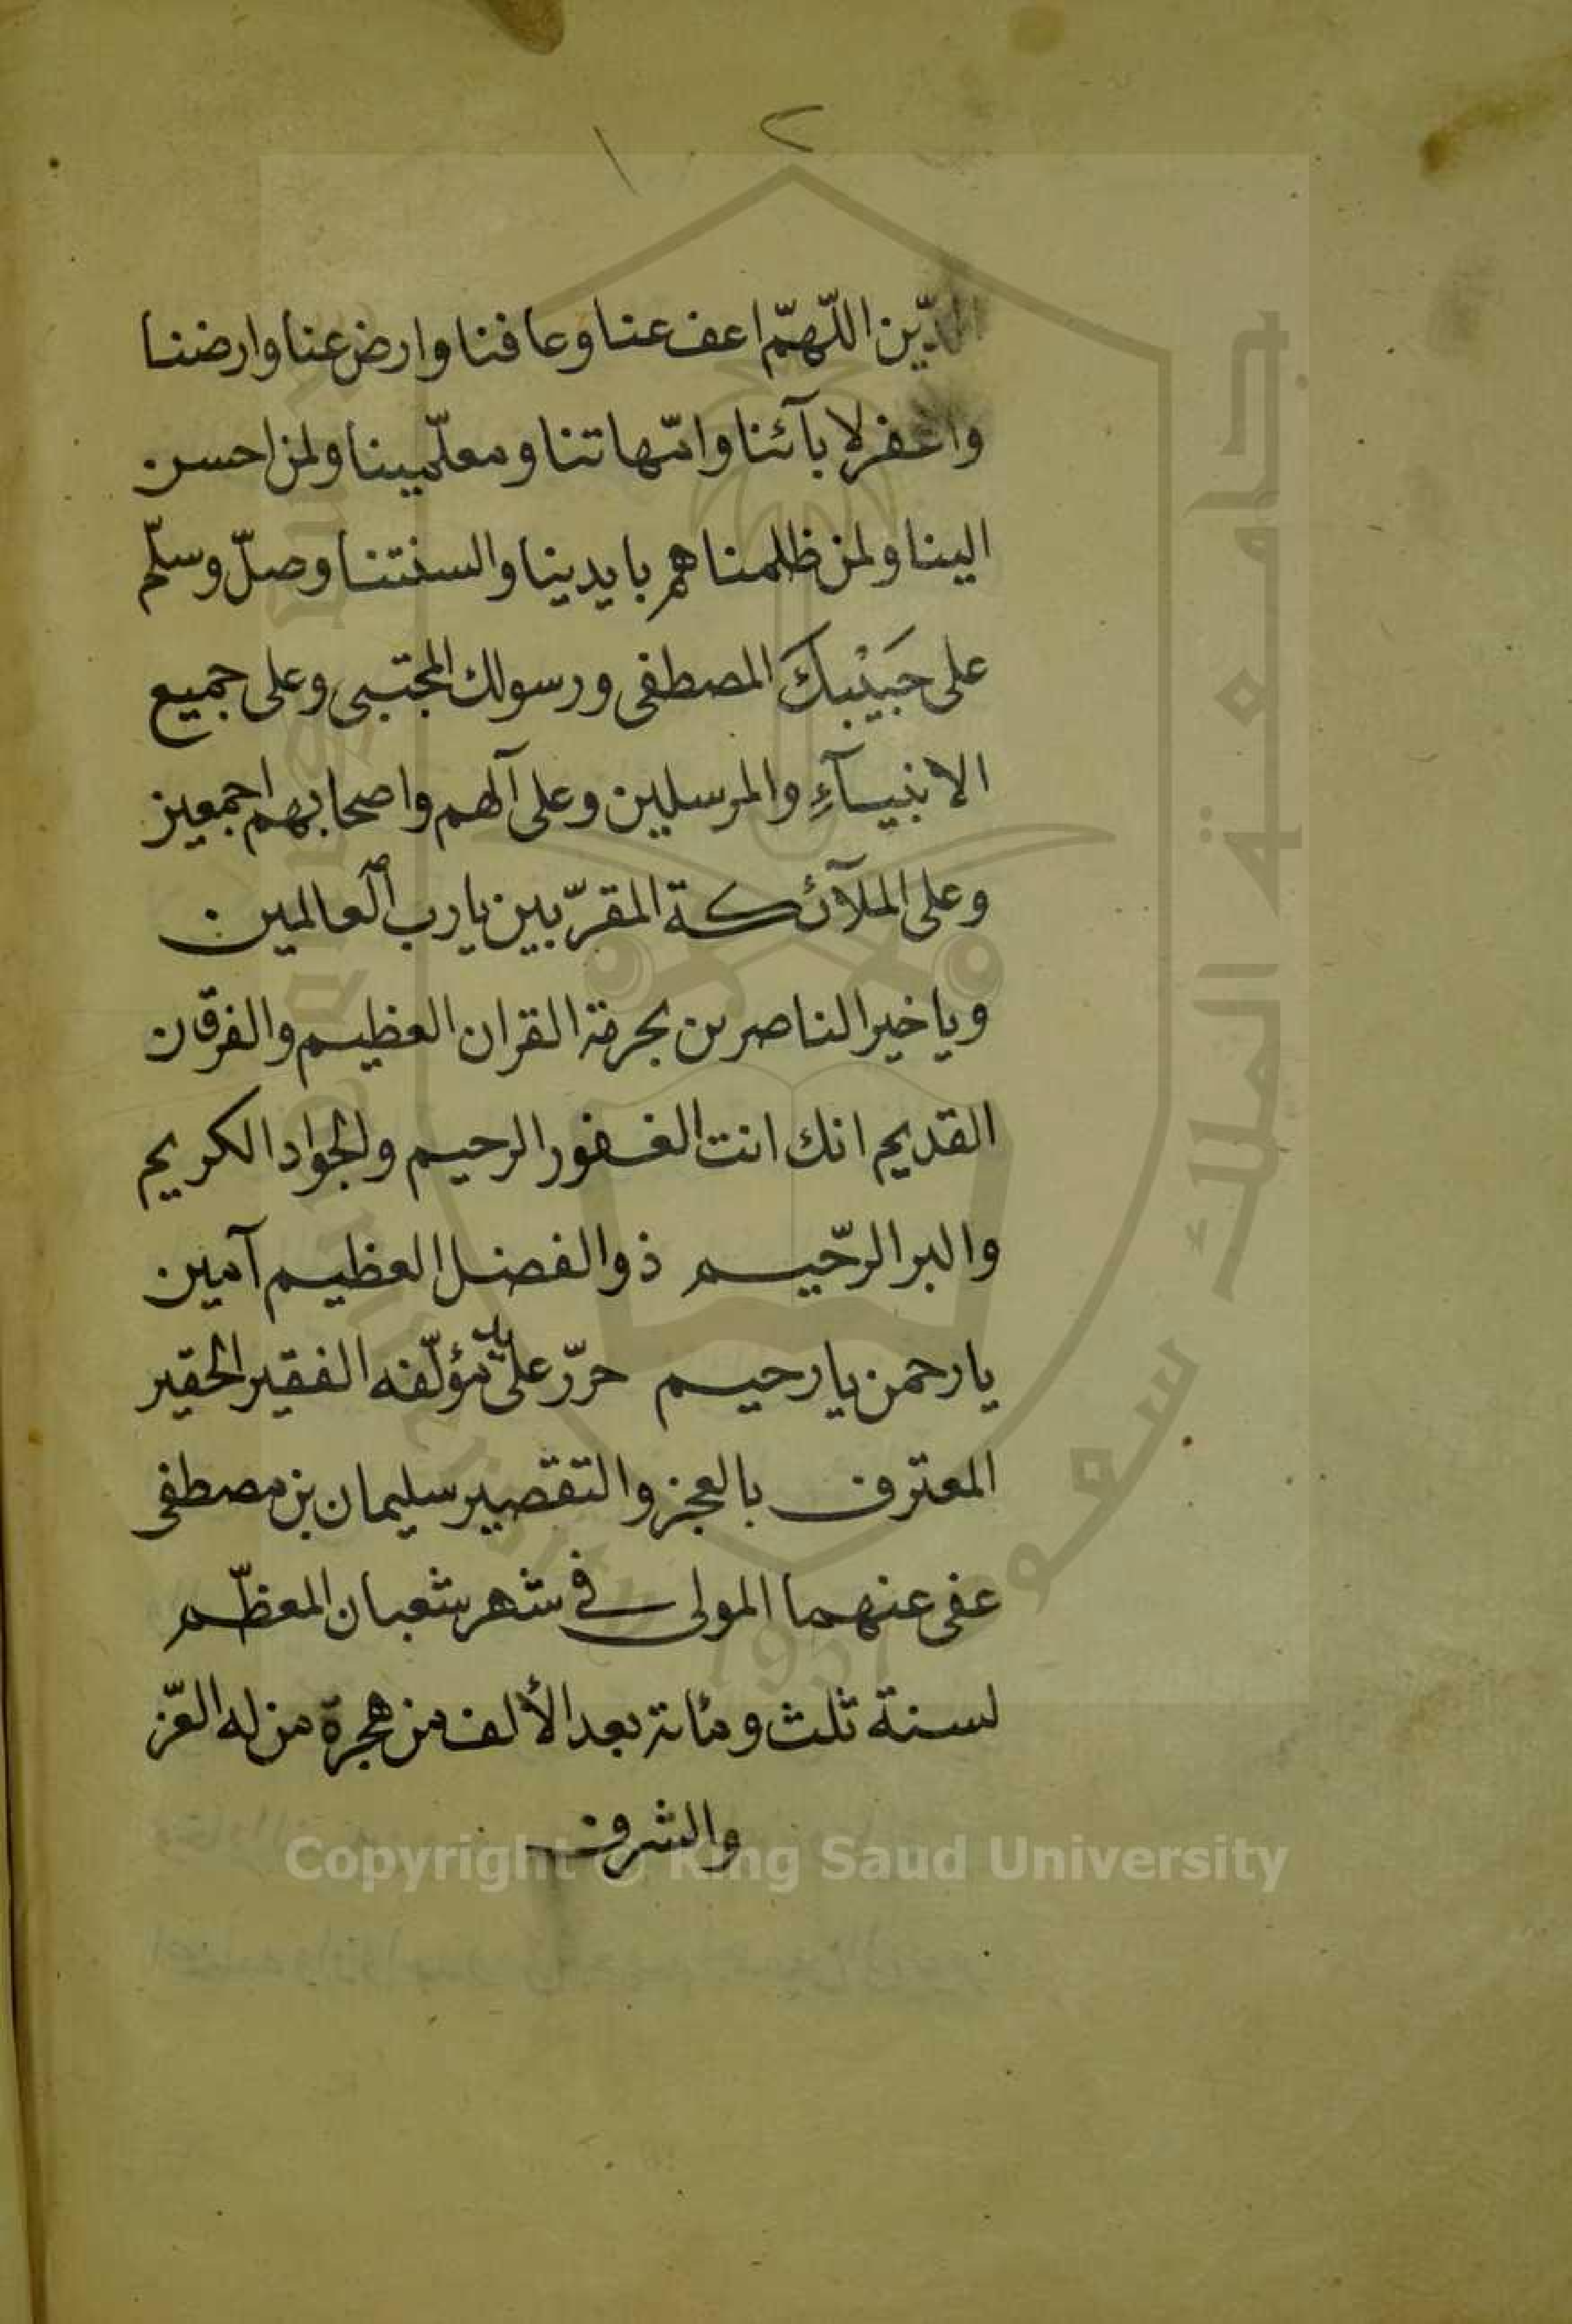 ٢
الدّين اللّهمّ اعف عنا وعافنا وارض عنا وارضنا
واغفر لابآئنا وامّهاتنا ومعلّمينا ولمن احسن
الينا ولمن ظلمناهم بايدينا والسنتنا وصلّ وسلّم
على حَبَيْبكَ المصطفى ورسولك المجتبى وعلى جميع
الانبيآءِ والمرسلين وعلى آلهم واصحابهم اجمعين
وعلى الملآئكة المقرّبين يا رب العالمين
ويا خير الناصرين بحرمة القران العظيم والفرقان
القديم انك انت الغفور الرحيم والجواد الكريم
والبر الرّحيم ذو الفضل العظيم آمين
يا رحمن يا رحيم حرّر على يد مؤلّفه الفقير الحقير
المعترف بالعجز والتقصير سليمان بن مصطفى
عفى عنهما المولى في شهر شعبان المعظّم
لسنة ثلث ومائة بعد الألف من هجرة من له العزّ
والشرف
جامعة الملك سعود
King Saud University
1957
Copyright © King Saud University